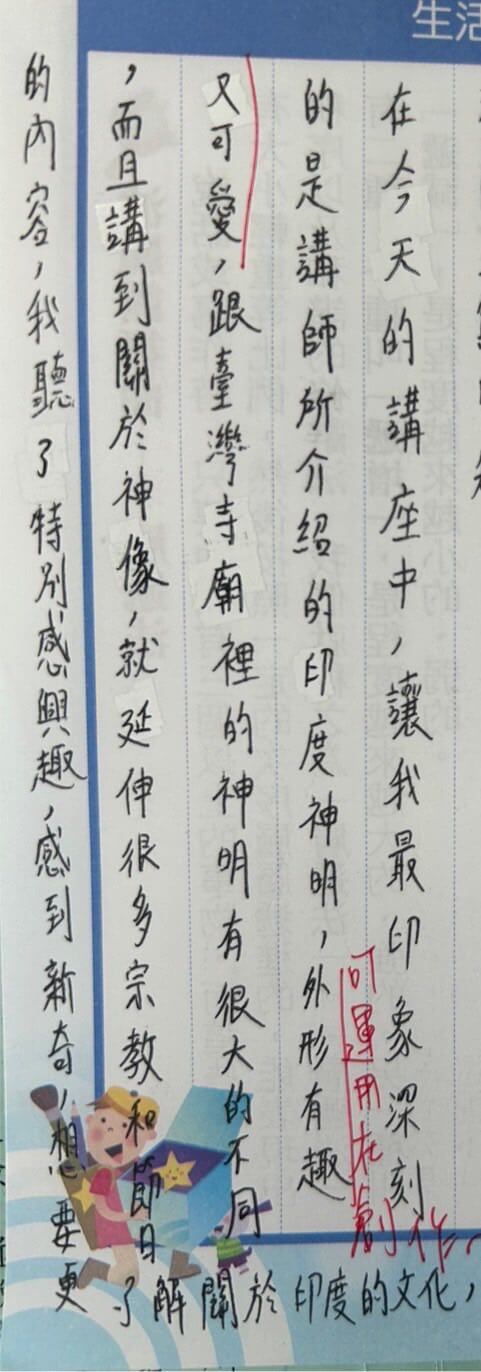 生活
在今天的講座中，讓我最印象深刻
的是講師所介紹的印度神明，外形有趣
可運用在創作。
又可愛，跟臺灣寺廟裡的神明有很大的不同
，而且講到關於神像，就延伸很多宗教和節日
的內容，我聽了特別感興趣，感到新奇，想要更
了解關於印度的文化，